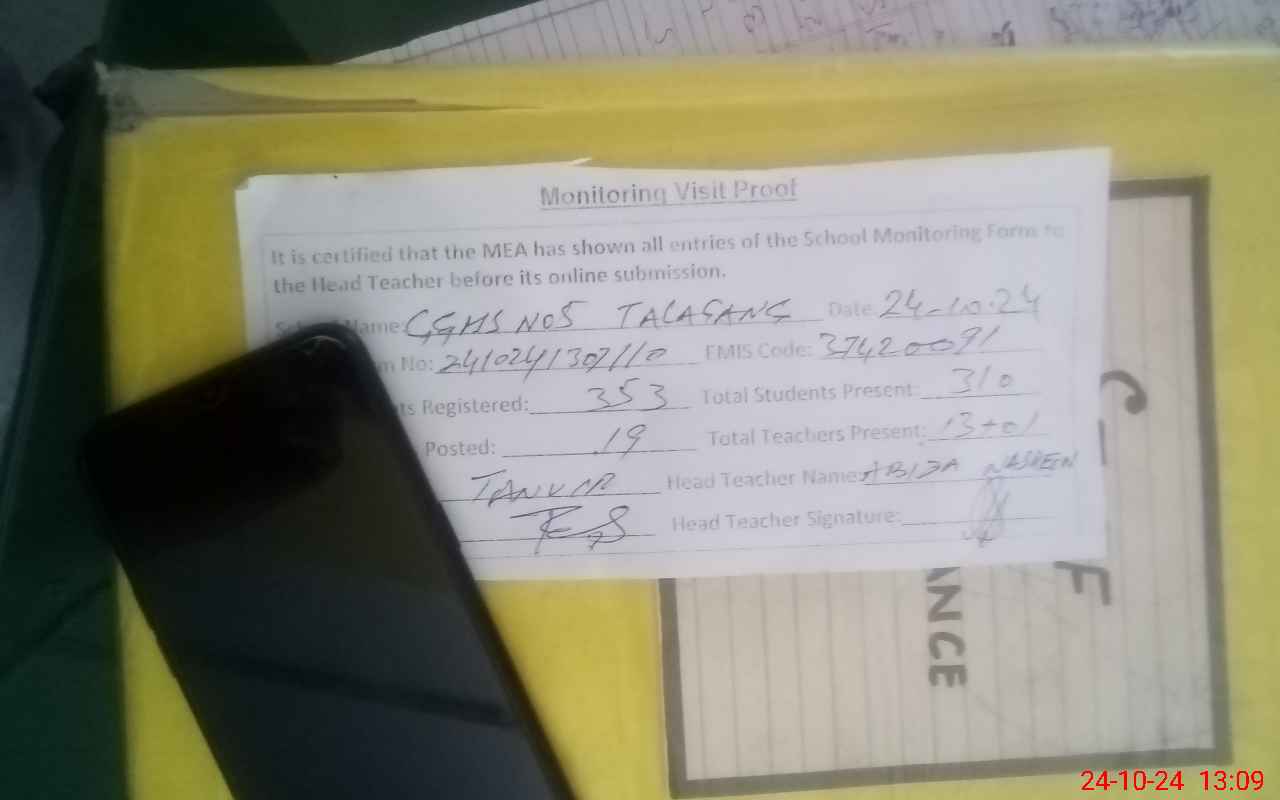 Monitoring Visit Proof
It is certified that the MEA has shown all entries of the School Monitoring Form to
the Head Teacher before its online submission.
Name: GGHS NO5 TALAGANG Date: 24-10-24
No: 2410241307110 EMIS Code: 37420091
ts Registered: 353 Total Students Present: 310
Posted: 19 Total Teachers Present: 13+01
TANVIR Head Teacher Name: ABIDA NASREEN
Head Teacher Signature:
ANCE
24-10-24 13:09